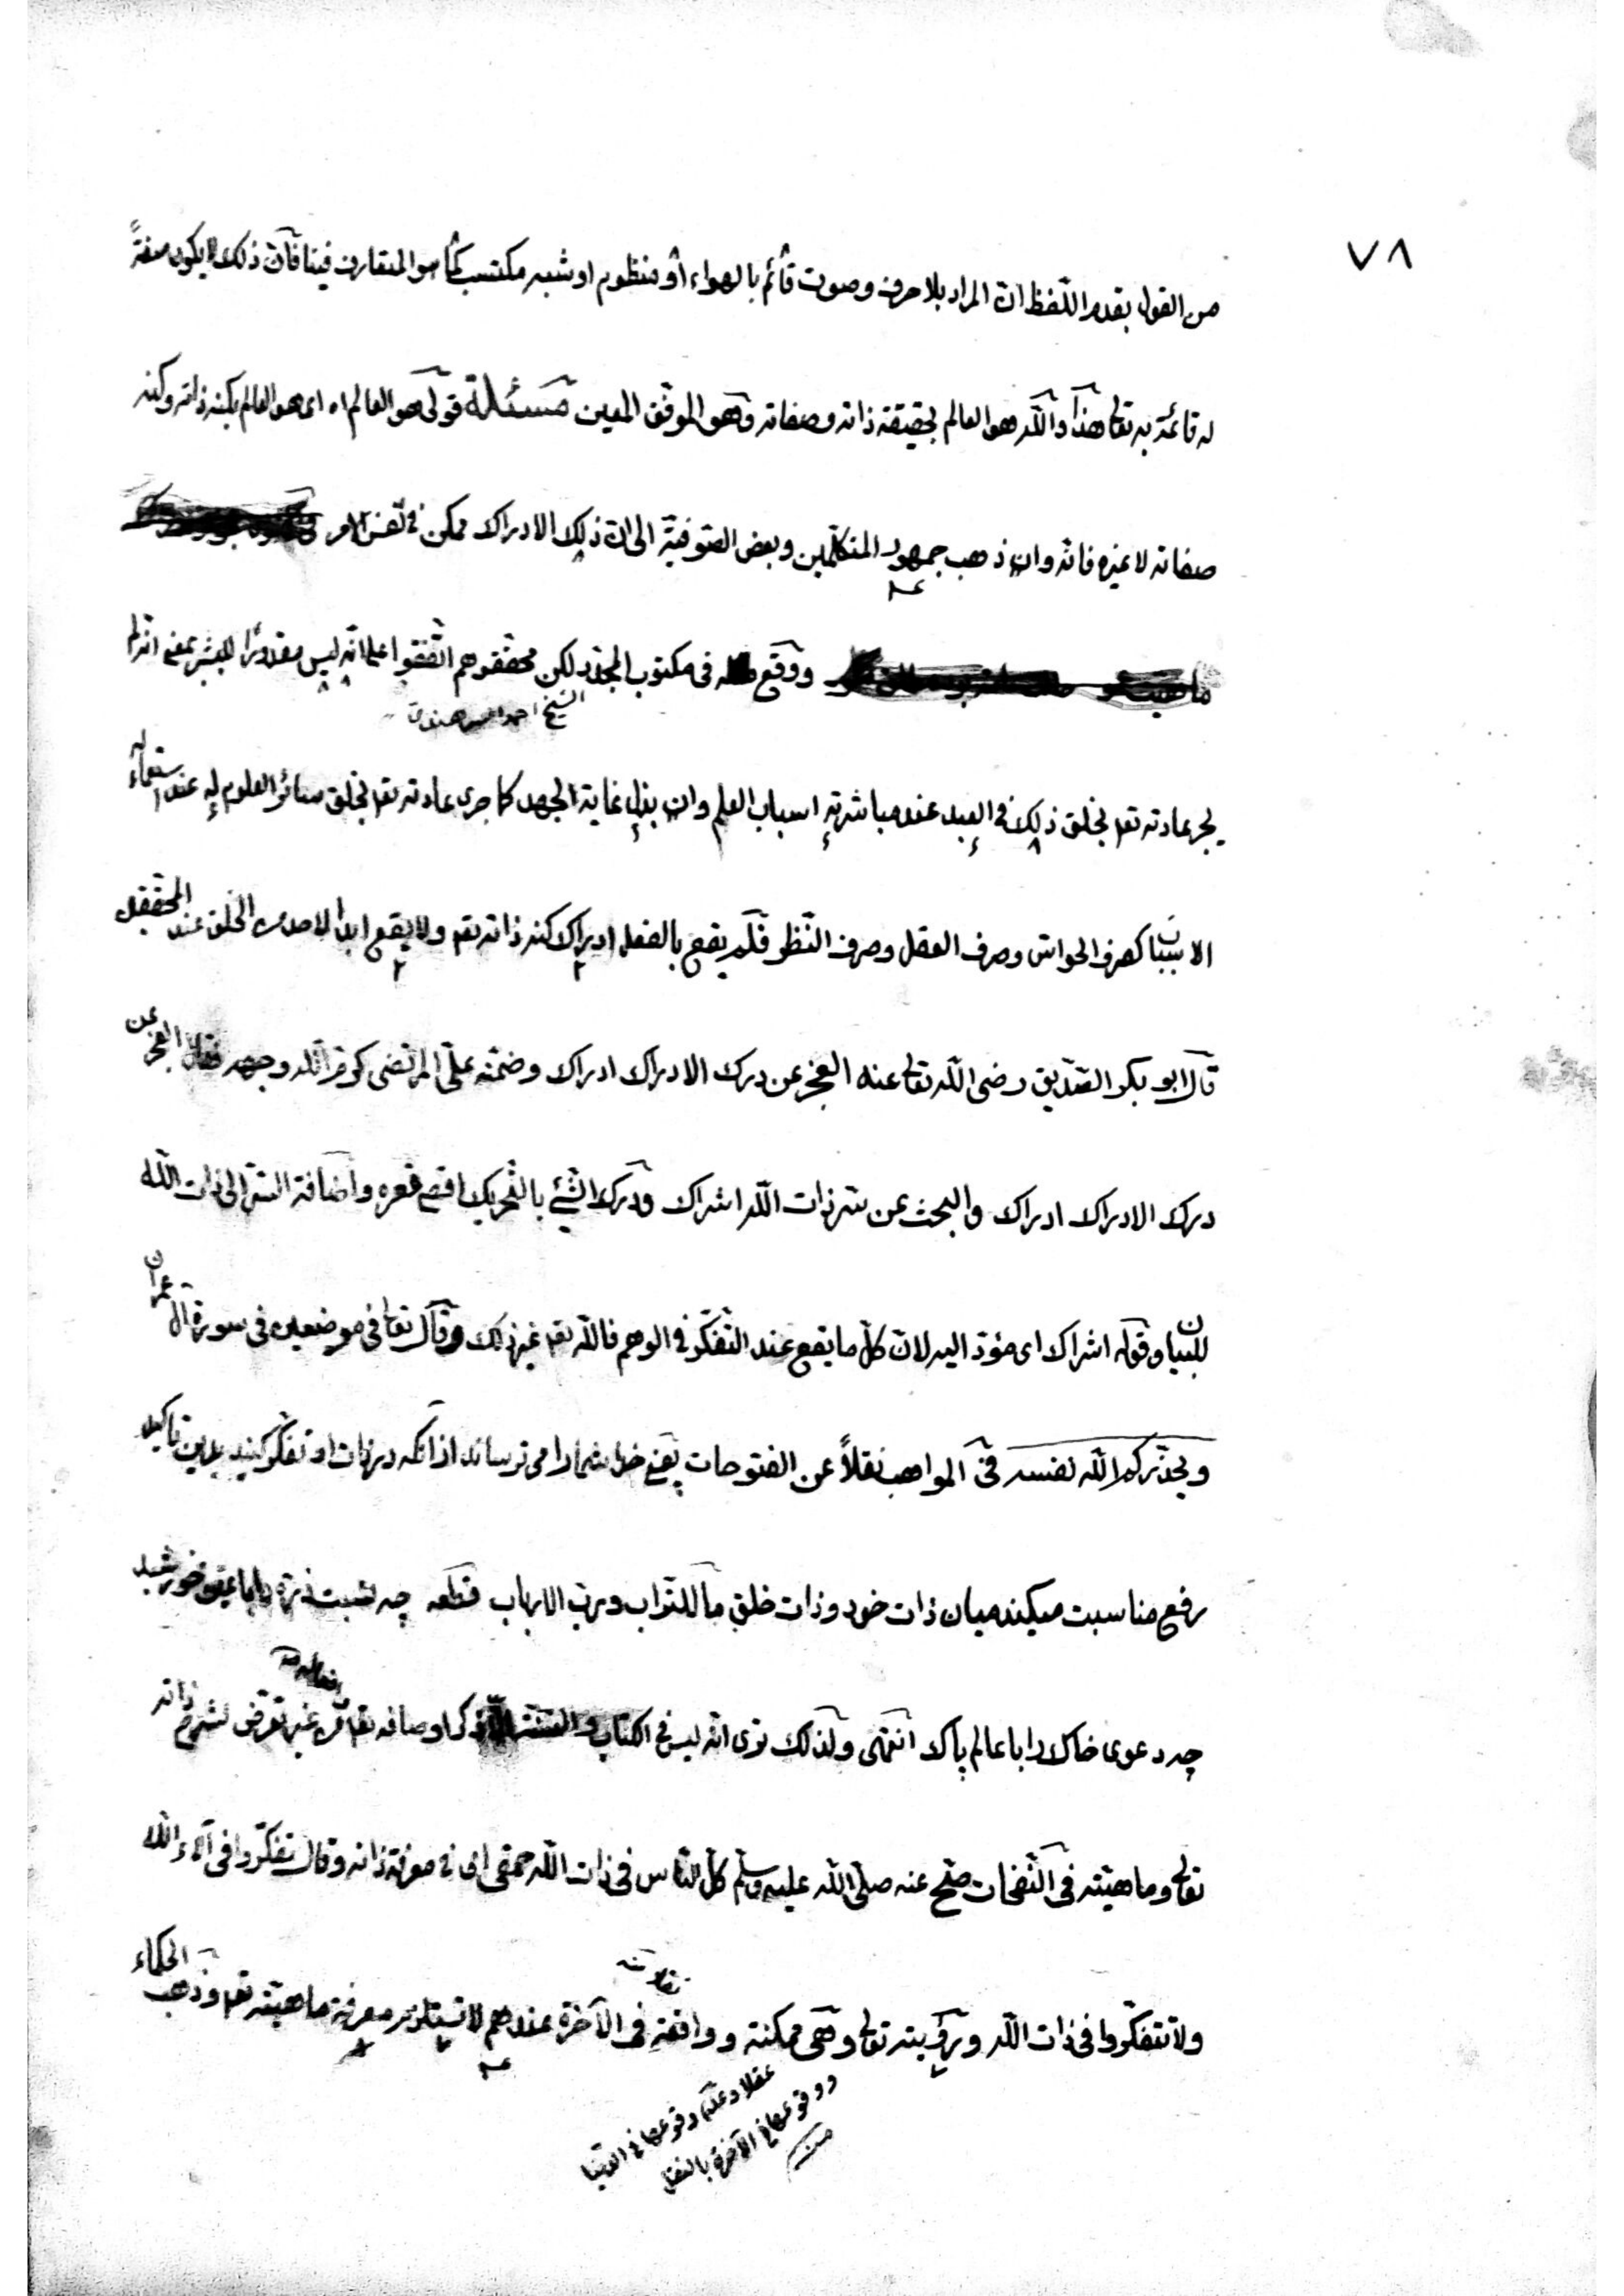 ٧٨
من القول بقدم اللّفظ انّ المراد بلا حرف وصوت قائم بالهواء أو منظوم او شبه مكتسب كما هو المتعارف فينا فانّ ذلك لا يكون صفةً
له قائمة به تعالى هذا واللّه هو العالم بحقيقة ذاته وصفاته وهو الموفّق المعين مسئلة قولى هو العالم اه اى هو العالم بكنه ذاته وكنه
صفاته لا غيره فانّه وان ذهب جمهور المتكلّمين وبعض الصّوفيّة الى انّ ذلك الادراك ممكن فى نفس الامر
ووقع فى مكتوب المجدّد لكن محقّقوهم اتّفقوا على انّه ليس مقدورًا للبشر بمعنى انّه لم
الشيخ احمد السرهندى
يجر عادته تعا بخلق ذلك فى العبد عند مباشرته اسباب العلم وان بذل غاية الجهد كما جرى عادته تعا بخلق سائر العلوم له عند استعماله
الاسباب كصرف الحواسّ وصرف العقل وصرف النّظر فلم يقع بالفعل ادراك كنه ذاته تعا ولا يقع ابدا لاحد من الخلق عند المحقّقين
قال ابو بكر الصّدّيق رضى اللّه تعالى عنه العجز عن درك الادراك ادراك وضمّنه علىّ المرتضى كرّم اللّه وجهه فقال العجز عن
درك الادراك ادراك والبحث عن سرّ ذات اللّه اشراك ودرك الشّئ بالتّحريك اقصى قعره واضافة السّرّ الى ذات اللّه
للبيان وقوله اشراك اى مؤدّ اليه لانّ كلّ ما يقع عند التّفكّر فى الوهم فاللّه تعا غير ذلك وقال تعالى فى موضعين فى سورة آل عمران
ويحذّركم اللّه نفسه فى المواهب نقلاً عن الفتوحات يعنى خدا شما را مى ترساند از انكه در ذات او تفكّر كنيد بدين تاكيد
رفع مناسبت ميكند ميان ذات خود وذات خلق ما للتّراب وربّ الارباب قطعه چه نسبت ذرّه را با عين خورشيد
چه دعوى خاك را با عالم پاك انتهى ولذلك ترى انّه ليس فى الكتاب والسّنّة الّا ذكر اوصافه تعا وافعاله من غير تعرّض لشرح ذاته
تعالى وماهيّته فى النّفحات صحّ عنه صلّى اللّه عليه وسلّم كلّ النّاس فى ذات اللّه حمقى اى فى معرفة ذاته وقال تفكّروا فى آلاء اللّه
ولا تتفكّروا فى ذات اللّه ورؤيته تعالى وهى ممكنة وواقعة فى الآخرة عندهم لا تستلزم معرفة ماهيّته تعا وذهب الحكماء
عقلا وعدم وقوعها فى الدّنيا
ووقوعها فى الآخرة بالنقل
منه